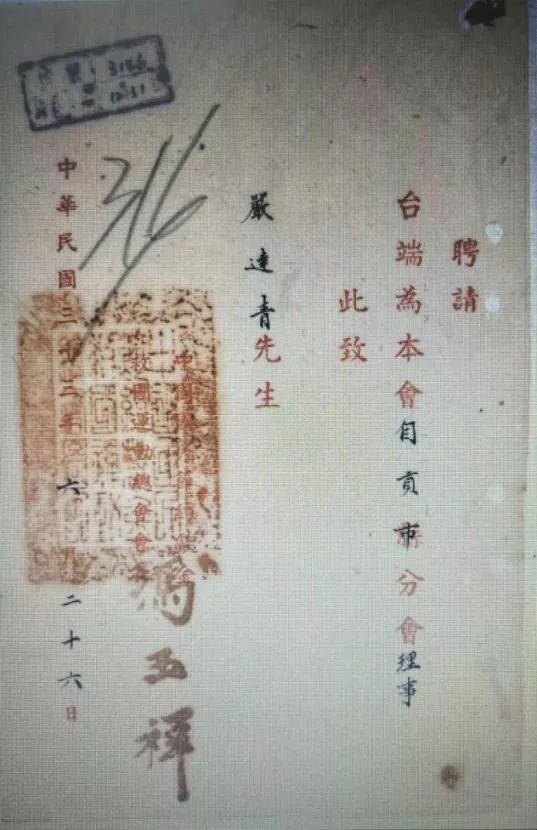 聘請
台端為本會自貢市分會理事
此致
嚴達青先生
中國
救國運動總會會
馮玉祥
中華民國三十三年六月二十六日